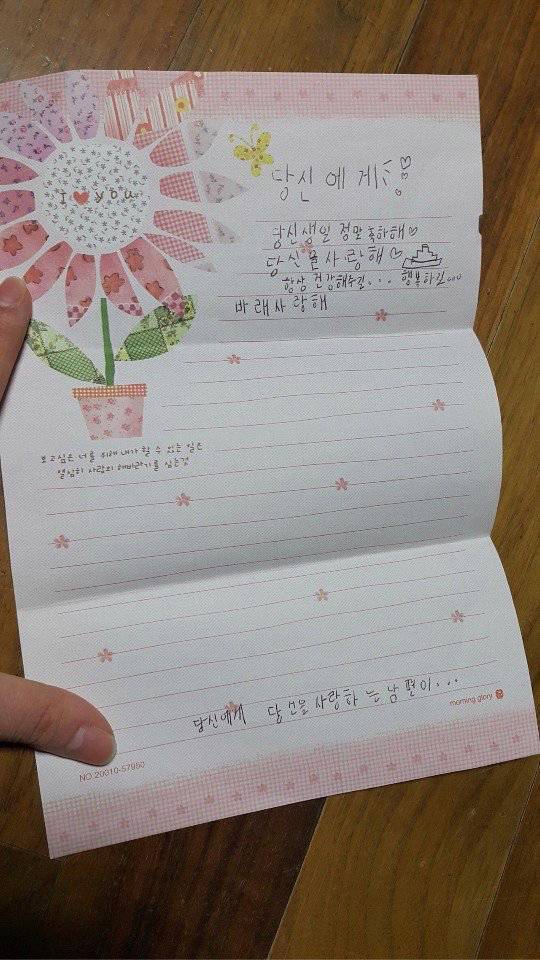 I ♥ you
당신에게
당신생일 정말 축하해♡
당신을사랑해♡
항상 건강해주길... 행복하길...
바래사랑해
보고싶은 너를 위해 내가 할 수 있는 일은
열심히 사랑의 해바라기를 심는것
당신에게 당신을사랑하는남편이...
morning glory
NO.20310-57950